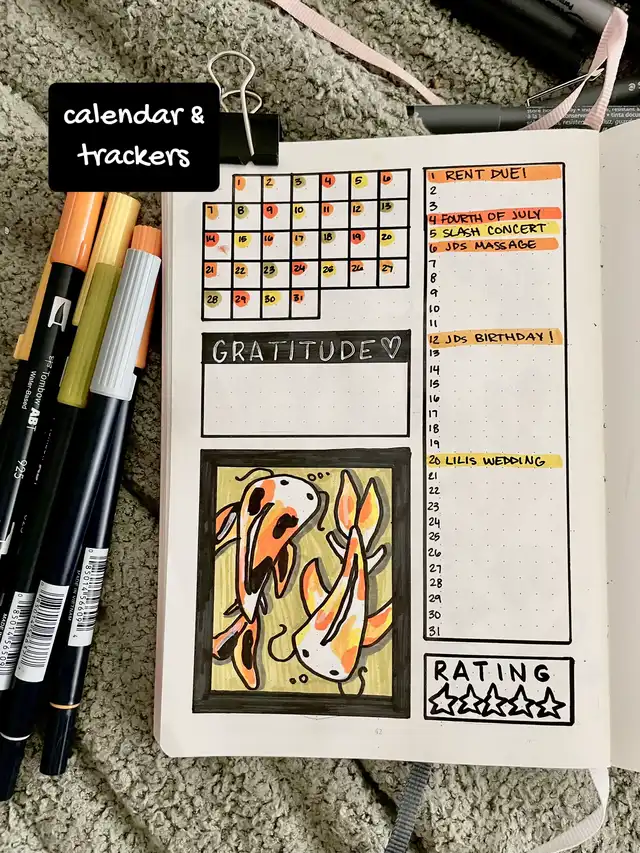 calendar &
trackers
1 2 3 4 5 6
7 8 9 10 11 12 13
14 15 16 17 18 19 20
21 22 23 24 25 26 27
28 29 30 31
GRATITUDE♡
1 RENT DUE!
2
3
4 FOURTH OF JULY
5 SLASH CONCERT
6 JDS MASSAGE
7
8
9
10
11
12 JDS BIRTHDAY!
13
14
15
16
17
18
19
20 LILIS WEDDING
21
22
23
24
25
26
27
28
29
30
31
RATING
42
Tombow ABT
Water-Based
925